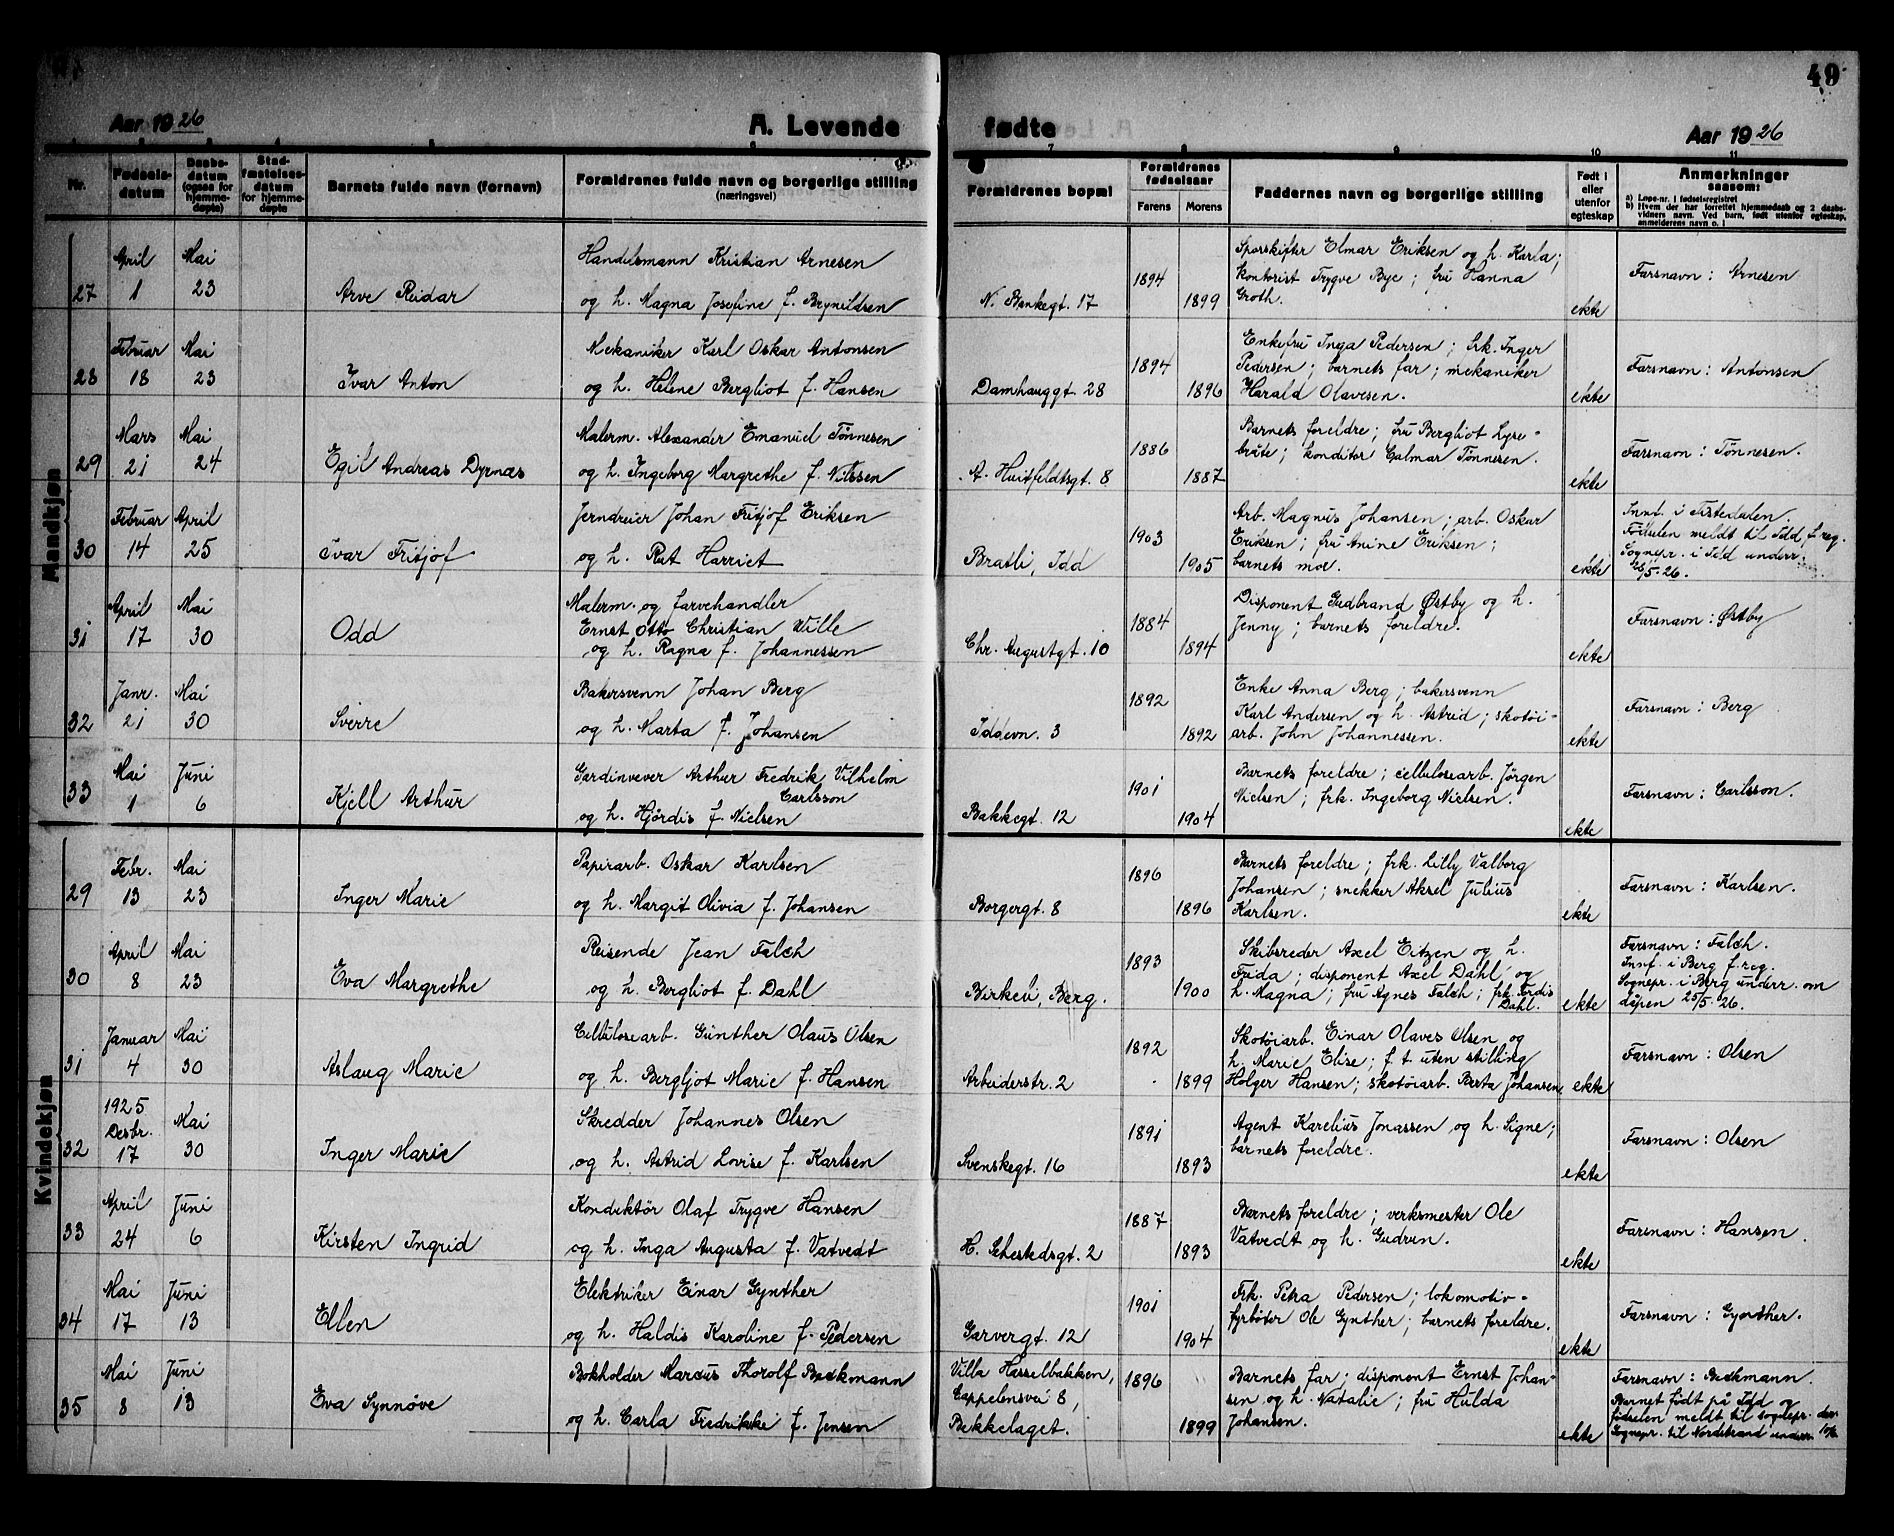 49
Aar 1926
A. Levende
fødte
Aar 1926
Nr.
Fødsels-datum
Daabs-datum (ogsaa for hjemme-døpte)
Stad-fæstelses-datum for hjemme-døpte
Barnets fulde navn (fornavn)
Forældrenes fulde navn og borgerlige stilling (næringsvei)
Forældrenes bopæl
Forældrenes fødselsaar
Farens
Morens
Faddernes navn og borgerlige stilling
Født i eller utenfor egteskap
Anmerkninger saasom:
a) Løpe-nr. i fødselsregistret
b) Hvem der har forrettet hjemmedaab og 2 daabs-vidners navn. Ved barn, født utenfor egteskap, anmelderens navn o. l
Mandkjøn
27
April 1
Mai 23
Arve Reidar
Handelsmann Kristian Arnesen
og h. Magna Josefine f. Brynildsen
N. Bankegt. 17
1894
1899
Sporskifter Elmar Eriksen og h. Karla;
kontorist Trygve Bye; fru Hanna
Groth.
ekte
Farsnavn: Arnesen
28
Februar 18
Mai 23
Ivar Anton
Mekaniker Karl Oskar Antonsen
og h. Helene Bergliot f. Hansen
Damhauggt. 28
1894
1896
Enkefru Inga Pedersen; frk. Inger
Pedersen; barnets far; mekaniker
Harald Olavesen.
ekte
Farsnavn: Antonsen
29
Mars 21
Mai 24
Egil Andreas Dyrnæs
Malerm. Alexander Emanuel Tønnesen
og h. Ingeborg Margrethe f. Nilssen
A. Huitfeldtsgt. 8
1886
1887
Barnets foreldre; fru Bergliot Lyse-
bråte; konditor Galmar Tønnesen.
ekte
Farsnavn: Tønnesen.
30
Februar 14
April 25
Ivar Fritjof
Jerndreier Johan Fritjof Eriksen
og h. Rut Harriet
Bratli, Idd
1903
1905
Arb. Magnus Johansen; arb. Oskar
Eriksen; fru Anine Eriksen;
barnets mor.
ekte
Innf. i Tistedalen
Fødselen meldt til Idd f. reg.
Sognepr. i Idd underr.
/5-26.
31
April 17
Mai 30
Odd
Malerm. og farvehandler
Ernst Otto Christian Wille
og h. Ragna f. Johannessen
Chr. Augustgt. 10
1884
1894
Disponent Gudbrand Østby og h.
Jenny; barnets foreldre.
ekte
Farsnavn: Østby
32
Janr. 21
Mai 30
Sverre
Bakersvenn Johan Berg
og h. Marta f. Johansen
Iddevn. 3
1892
1892
Enke Anna Berg; bakersvenn
Karl Andersen og h. Astrid; skotøi-
arb. John Johannessen.
ekte
Farsnavn: Berg
33
Mai 1
Juni 6
Kjell Arthur
Gardinvever Arthur Fredrik Vilhelm
Carlsson
og h. Hjørdis f. Nielsen
Bakkegt. 12
1901
1904
Barnets foreldre; cellulosearb. Jörgen
Nielsen; frk. Ingeborg Nielsen.
ekte
Farsnavn: Carlsson.
Kvindekjøn
29
Febr. 13
Mai 23
Inger Marie
Papirarb. Oskar Karlsen
og h. Margit Olivia f. Johansen
Borgergt. 8
1896
1896
Barnets foreldre; frk. Lilly Valborg
Johansen; snekker Aksel Julius
Karlsen.
ekte
Farsnavn: Karlsen.
30
April 8
Mai 23
Eva Margrethe
Reisende Jean Falch
og h. Bergliot f. Dahl
Birkeli, Berg.
1893
1900
Skibsreder Axel Eitzen og h.
Frida; disponent Axel Dahl og
h. Magna; fru Agnes Falch; frk. Fordis
Dahl.
ekte
Farsnavn: Falch.
Innf. i Berg f. reg.
Sognepr. i Berg underr. om
dåpen 25/5-26.
31
Januar 4
Mai 30
Aslaug Marie
Cellulosearb. Günther Olaus Olsen
og h. Bergljot Marie f. Hansen
Arbeiderstr. 2
1892
1899
Skotøiarb. Einar Olaves Olsen og
h. Marie Elise; f. t. uten stilling
Holger Hansen; skotøiarb. Berta Johansen
ekte
Farsnavn: Olsen
32
1925 Desbr. 17
Mai 30
Inger Marie
Skredder Johannes Olsen
og h. Astrid Lovise f. Karlsen
Svenskegt. 16
1891
1893
Agent Karelius Jonassen og h. Signe;
barnets foreldre.
ekte
Farsnavn: Olsen
33
April 24
Juni 6
Kirsten Ingrid
Konduktör Olaf Trygve Hansen
og h. Inga Augusta f. Vatvedt
H. Sehestedsgt. 2
1887
1893
Barnets foreldre; verksmester Ole
Vatvedt og h. Gudrun.
ekte
Farsnavn: Hansen.
34
Mai 17
Juni 13
Ellen
Elektriker Einar Gynther
og h. Haldis Karoline f. Pedersen
Garvergt. 12
1901
1904
Frk. Petra Pedersen; lokomotiv-
fyrbøter Ole Gynther; barnets foreldre.
ekte
Farsnavn: Gynther.
35
Mai 8
Juni 13
Eva Synnöve
Bokholder Marcus Thorolf Beckmann
og h. Carla Fredrikke f. Jensen
Villa Hasselbakken,
Cappelensvei 8,
Bekkelaget.
1896
1899
Barnets far; disponent Ernst Johan-
sen og h. Natalie; fru Hulda
Johansen.
ekte
Farsnavn: Beckmann.
Barnet født på Idd og
fødselen meldt til sognepr. der.
Sognepr. til Nordstrand underr.